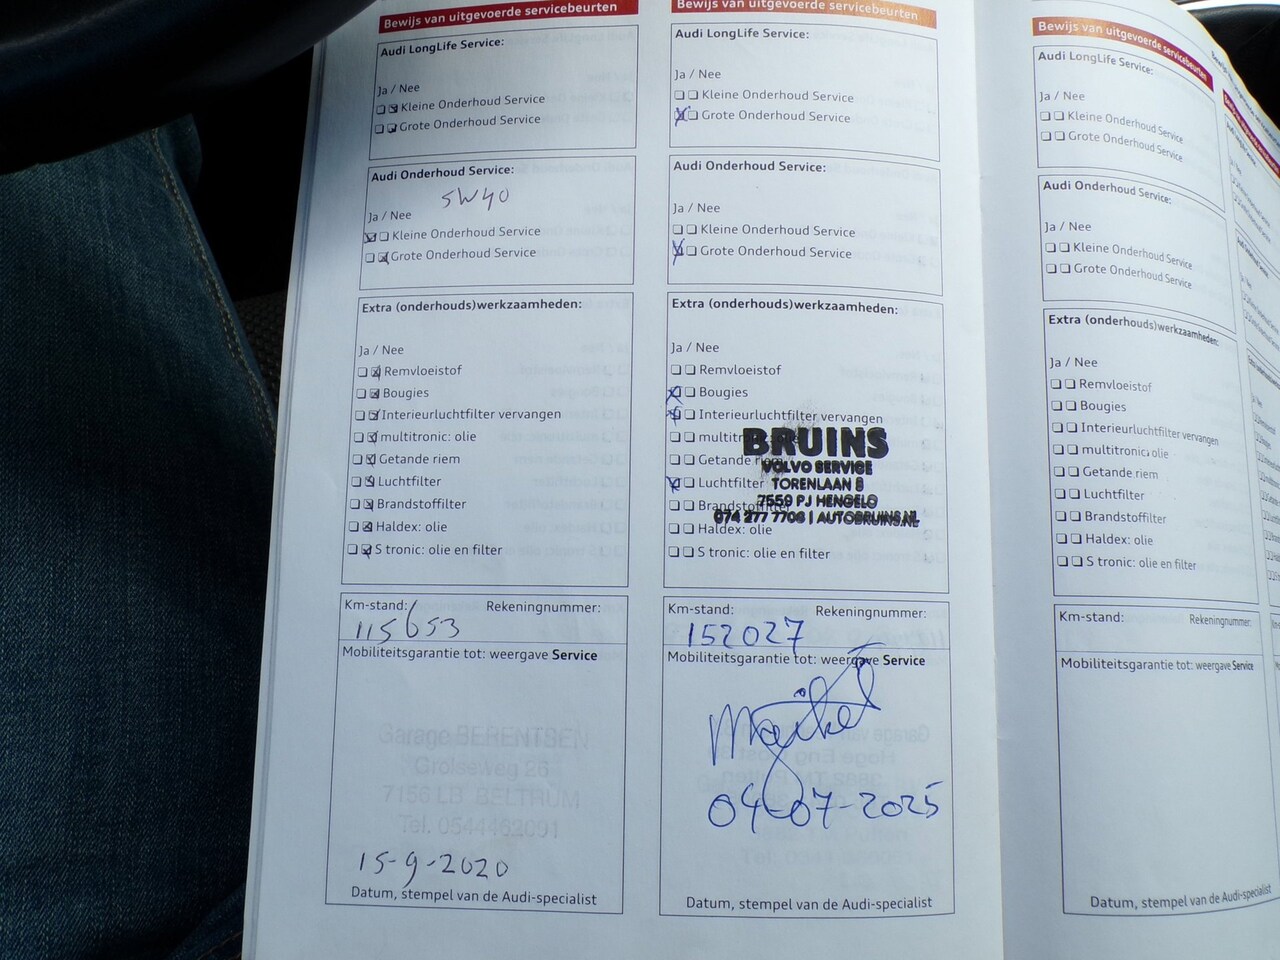 Bewijs van uitgevoerde servicebeurten
Audi LongLife Service:
Ja / Nee
Kleine Onderhoud Service
Grote Onderhoud Service
Audi Onderhoud Service:
5W40
Ja / Nee
Kleine Onderhoud Service
Grote Onderhoud Service
Extra (onderhouds)werkzaamheden:
Ja / Nee
Remvloeistof
Bougies
Interieurluchtfilter vervangen
multitronic: olie
Getande riem
Luchtfilter
Brandstoffilter
Haldex: olie
S tronic: olie en filter
Km-stand: Rekeningnummer:
115653
Mobiliteitsgarantie tot: weergave Service
Garage BERENTSEN
Grolseweg 26
7156 LB BELTRUM
Tel. 0544462091
15-9-2020
Datum, stempel van de Audi-specialist
Bewijs van uitgevoerde servicebeurten
Audi LongLife Service:
Ja / Nee
Kleine Onderhoud Service
Grote Onderhoud Service
Audi Onderhoud Service:
Ja / Nee
Kleine Onderhoud Service
Grote Onderhoud Service
Extra (onderhouds)werkzaamheden:
Ja / Nee
Remvloeistof
Bougies
Interieurluchtfilter vervangen
multitronic: olie
Getande riem
Luchtfilter
Brandstoffilter
Haldex: olie
S tronic: olie en filter
BRUINS
VOLVO SERVICE
TORENLAAN 8
7559 PJ HENGELO
074 277 7706 | AUTOBRUINS.NL
Km-stand: Rekeningnummer:
152027
Mobiliteitsgarantie tot: weergave Service
04-07-2025
Datum, stempel van de Audi-specialist
Bewijs van uitgevoerde servicebeurten
Audi LongLife Service:
Ja / Nee
Kleine Onderhoud Service
Grote Onderhoud Service
Audi Onderhoud Service:
Ja / Nee
Kleine Onderhoud Service
Grote Onderhoud Service
Extra (onderhouds)werkzaamheden:
Ja / Nee
Remvloeistof
Bougies
Interieurluchtfilter vervangen
multitronic: olie
Getande riem
Luchtfilter
Brandstoffilter
Haldex: olie
S tronic: olie en filter
Km-stand: Rekeningnummer:
Mobiliteitsgarantie tot: weergave Service
Datum, stempel van de Audi-specialist